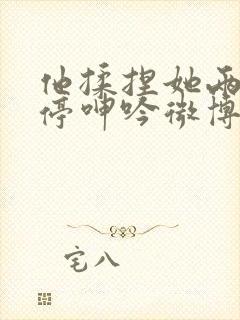 他揉捏她两
停呻吟微博
宅八